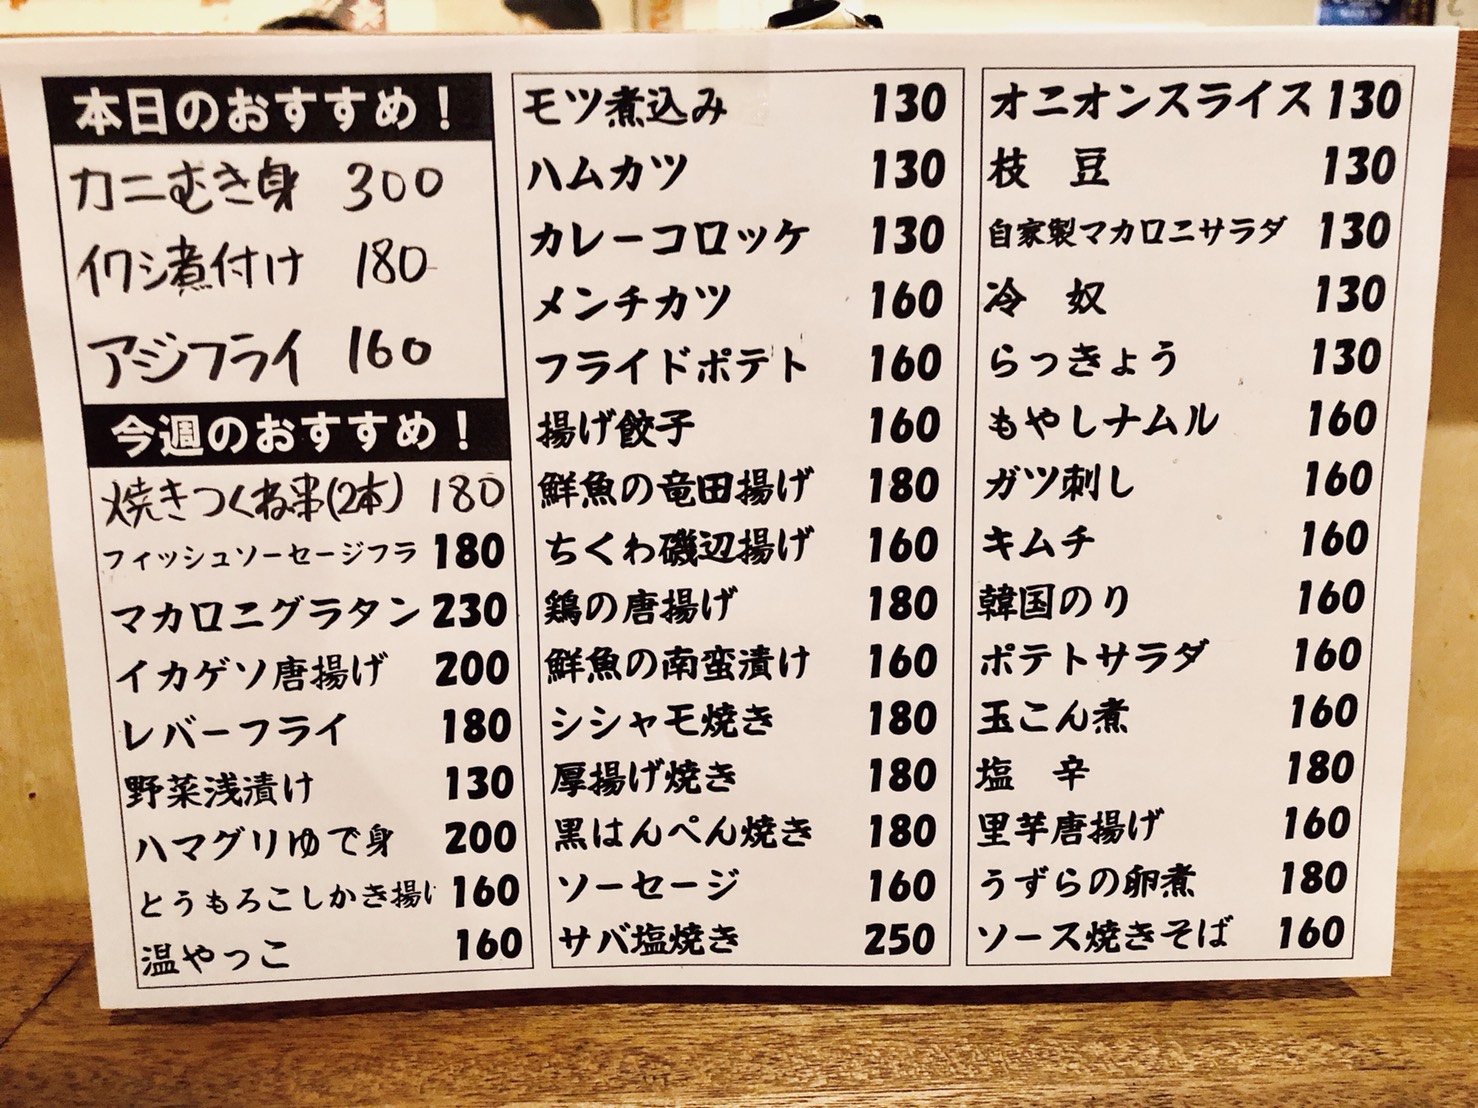 本日のおすすめ！
カニむき身 300
イワシ煮付け 180
アジフライ 160
今週のおすすめ！
焼きつくね串(2本) 180
フィッシュソーセージフラ 180
マカロニグラタン 230
イカゲソ唐揚げ 200
レバーフライ 180
野菜浅漬け 130
ハマグリゆで身 200
とうもろこしかき揚げ 160
温やっこ 160
モツ煮込み 130
ハムカツ 130
カレーコロッケ 130
メンチカツ 160
フライドポテト 160
揚げ餃子 160
鮮魚の竜田揚げ 180
ちくわ磯辺揚げ 160
鶏の唐揚げ 180
鮮魚の南蛮漬け 160
シシャモ焼き 180
厚揚げ焼き 180
黒はんぺん焼き 180
ソーセージ 160
サバ塩焼き 250
オニオンスライス 130
枝豆 130
自家製マカロニサラダ 130
冷奴 130
らっきょう 130
もやしナムル 160
ガツ刺し 160
キムチ 160
韓国のり 160
ポテトサラダ 160
玉こん煮 160
塩辛 180
里芋唐揚げ 160
うずらの卵煮 180
ソース焼きそば 160